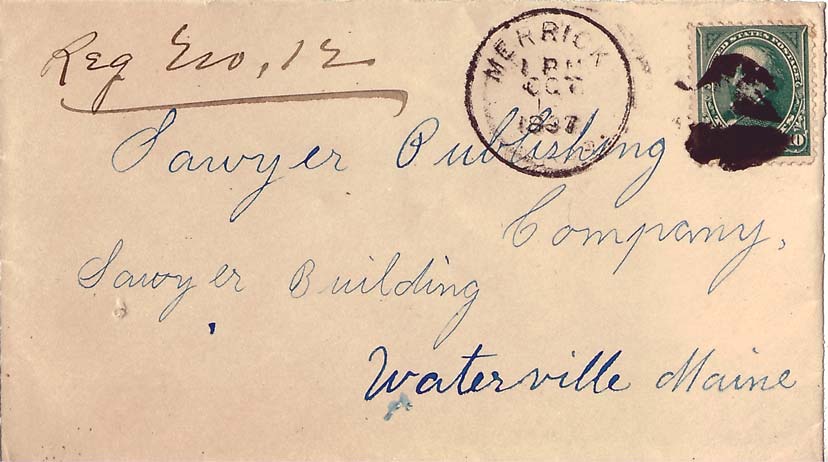 Reg No, 12
MERRICK
1 PM
OCT
1
1897
UNITED STATES POSTAGE
10
Sawyer Publishing
Company,
Sawyer Building
Waterville Maine